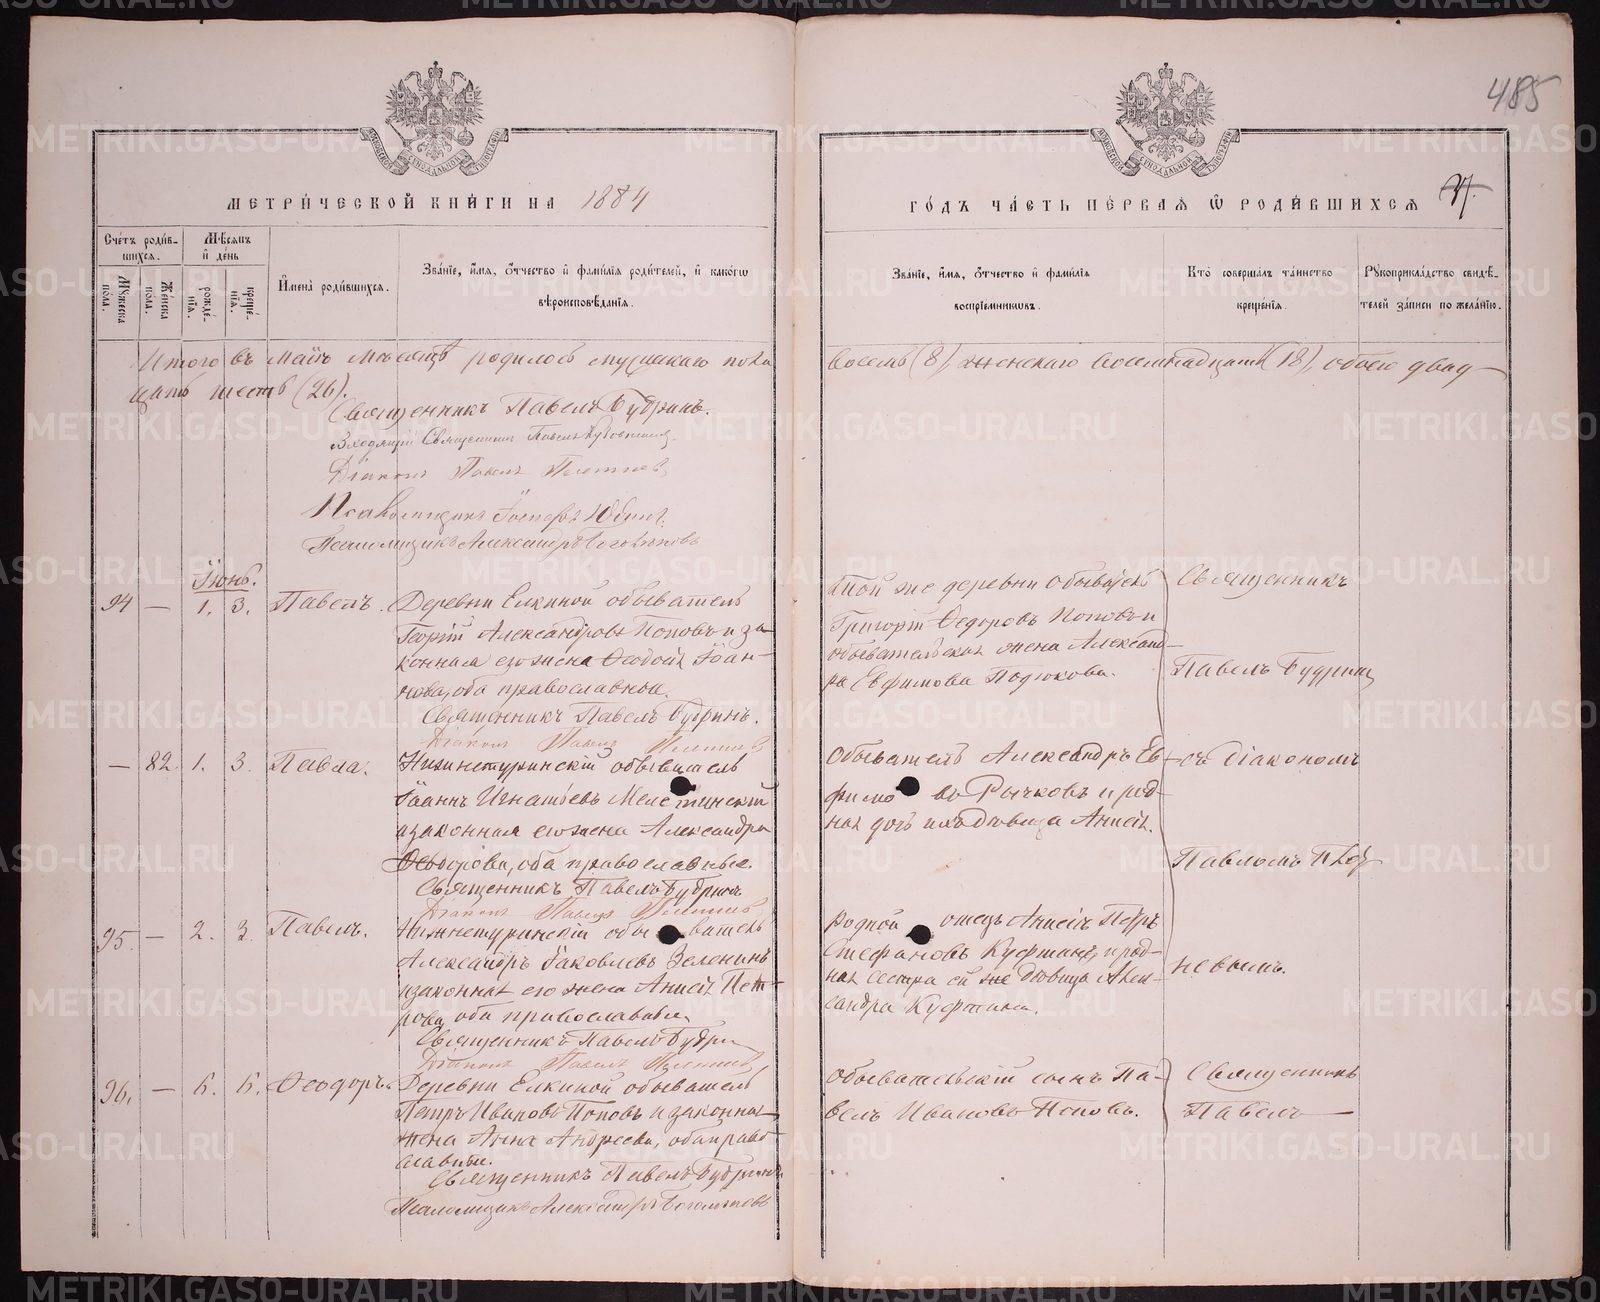 485
МЕТРИЧЕСКОЙ КНИГИ НА 1884
ГОДЪ ЧАСТЬ ПЕРВАЯ Ѿ РОДИВШИХСЯ
Счетъ родив-
шихся.
Мѣсяцъ
и день
Мужеска пола.
Женска пола.
рожде-
нія.
креще-
нія.
Имена родившихся.
Званіе, имя, отчество и фамилія родителей, и какогѡ
вѣроисповѣданія.
Званіе, имя, отчество и фамилія
воспріемниковъ.
Кто совершалъ таинство
крещенія.
Рукоприкладство свидѣ-
телей записи по желанію.
Итого въ Маѣ мѣсяцѣ родилось мужескаго пола
восемь (8), женскаго восемнадцать (18), обоего двад-
цать шесть (26).
Священникъ Павелъ Будринъ.
Священникъ Павелъ
Діаконъ Павелъ
Псаломщикъ
Псаломщикъ Александръ Боголѣповъ
Іюнь.
94 — 1. 3. Павелъ.
Деревни Елкиной обыватель
Георгій Александровъ Поповъ и за-
конная его жена Ѳеодосія Іоан-
нова, оба православные.
Священникъ Павелъ Будринъ.
Діаконъ Павелъ
той же деревни обыватель
Григорій Ѳедоровъ Поповъ и
обывательская жена Александ-
ра Евфимова Подюкова.
Священникъ
Павелъ Будринъ
— 82. 1. 3. Павла.
Нижнетуринскій обыватель
Іоаннъ Игнатьевъ
и законная его жена Александра
Ѳеодорова, оба православные.
Священникъ Павелъ Будринъ
Діаконъ Павелъ
Обыватель Александръ Ев-
фимовъ Рычковъ и род-
ная дочь ихъ дѣвица Анисія.
съ діакономъ
Павломъ
95. — 2. 3. Павелъ.
Нижнетуринскій обыватель
Александръ Іаковлевъ Зеленинъ
и законная его жена Анисія Пет-
рова, оба православные
Священникъ Павелъ Будринъ
Діаконъ Павелъ
родной отецъ Анисіи Петръ
Стефановъ Куфтинъ и род-
ная сестра ей же дѣвица Алек-
сандра Куфтина.
96. — 6. 6. Ѳеодоръ.
Деревни Елкиной обыватель
Петръ Ивановъ Поповъ и законная
жена Анна Андреева, оба право-
славные.
Священникъ Павелъ Будринъ
Псаломщикъ Александръ Боголѣповъ
обывательскій сынъ Па-
велъ Ивановъ Поповъ.
Священникъ
Павелъ —
METRIKI.GASO-URAL.RU